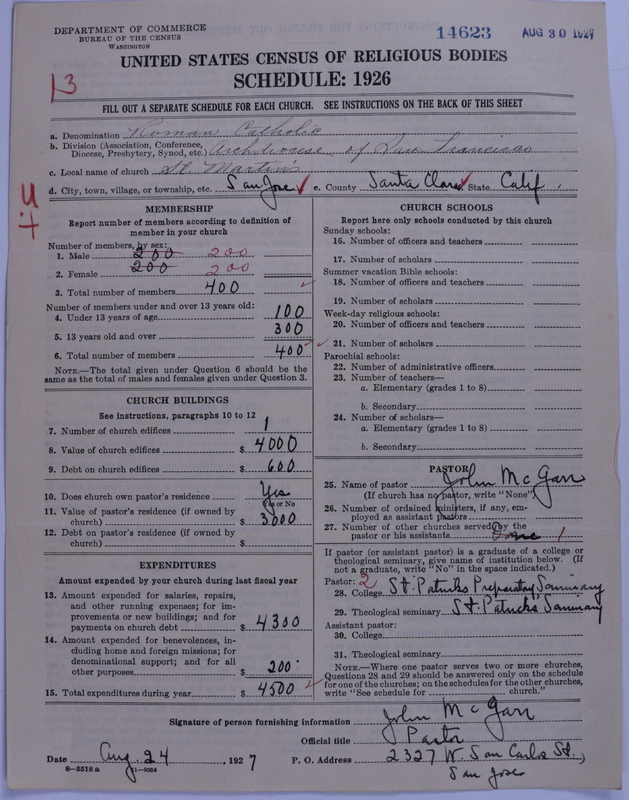 DEPARTMENT OF COMMERCE
BUREAU OF THE CENSUS
WASHINGTON
14623
AUG 30 1927
UNITED STATES CENSUS OF RELIGIOUS BODIES
SCHEDULE: 1926
13
FILL OUT A SEPARATE SCHEDULE FOR EACH CHURCH. SEE INSTRUCTIONS ON THE BACK OF THIS SHEET
a. Denomination Roman Catholic
b. Division (Association, Conference, Diocese, Presbytery, Synod, etc.) Archdiocese of San Francisco
c. Local name of church St. Martin's
d. City, town, village, or township, etc. San Jose e. County Santa Clara State Calif.
MEMBERSHIP
Report number of members according to definition of
member in your church
Number of members, by sex:
1. Male 200 200
2. Female 200 200
3. Total number of members 400
Number of members under and over 13 years old:
4. Under 13 years of age 100
5. 13 years old and over 300
6. Total number of members 400
NOTE.—The total given under Question 6 should be
same as the total of males and females given under Question 3.
CHURCH BUILDINGS
See instructions, paragraphs 10 to 12
7. Number of church edifices 1
8. Value of church edifices $ 4000
9. Debt on church edifices $ 600
10. Does church own pastor's residence Yes
Yes or No
11. Value of pastor's residence (if owned by
church) $ 3000
12. Debt on pastor's residence (if owned by
church) $
EXPENDITURES
Amount expended by your church during last fiscal year
13. Amount expended for salaries, repairs,
and other running expenses; for im-
provements or new buildings; and for
payments on church debt $ 4300
14. Amount expended for benevolences, in-
cluding home and foreign missions; for
denominational support; and for all
other purposes $ 200
15. Total expenditures during year $ 4500
CHURCH SCHOOLS
Report here only schools conducted by this church
Sunday schools:
16. Number of officers and teachers
17. Number of scholars
Summer vacation Bible schools:
18. Number of officers and teachers
19. Number of scholars
Week-day religious schools:
20. Number of officers and teachers
21. Number of scholars
Parochial schools:
22. Number of administrative officers
23. Number of teachers—
a. Elementary (grades 1 to 8)
b. Secondary
24. Number of scholars—
a. Elementary (grades 1 to 8)
b. Secondary
PASTOR
25. Name of pastor John McGarr
(If church has no pastor, write "None")
26. Number of ordained ministers, if any, em-
ployed as assistant pastors
27. Number of other churches served by the
pastor or his assistants 1
If pastor (or assistant pastor) is a graduate of a college or
theological seminary, give name of institution below. (If
not a graduate, write "No" in the space indicated.)
Pastor: 2
28. College St. Patricks Preparatory Seminary
29. Theological seminary St. Patricks Seminary
Assistant pastor:
30. College
31. Theological seminary
NOTE.—Where one pastor serves two or more churches,
Questions 28 and 29 should be answered only on the schedule
for one of the churches; on the schedules for the other churches,
write "See schedule for church."
Signature of person furnishing information John McGarr
Official title Pastor
Date Aug. 24, 1927 P. O. Address 2327 W. San Carlos St.,
8—5518a 11—9054 San Jose